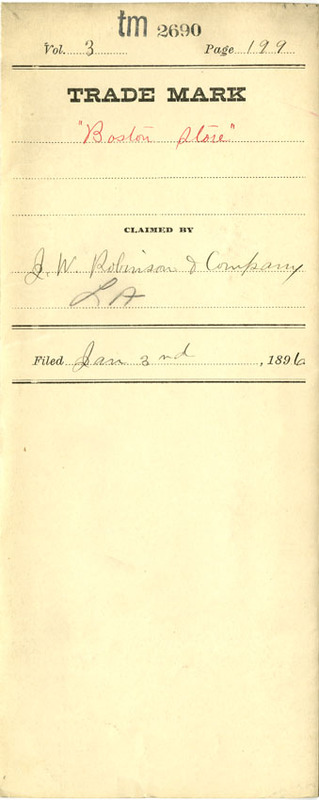 tm 2690
Vol. 3 Page 199
TRADE MARK
"Boston Store"
CLAIMED BY
J. W. Robinson & Company
LA
Filed Jan 2nd, 1896